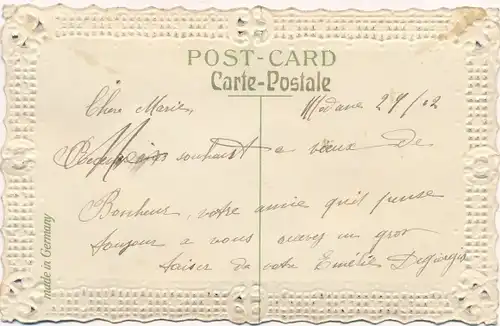 POST-CARD
Carte-Postale
Chere Marie,
Modane 29/12
souhait e vœux de
Bonheur, votre amie qui pense
toujour a vous recevez un gros
baiser de votre Emélie
made in Germany